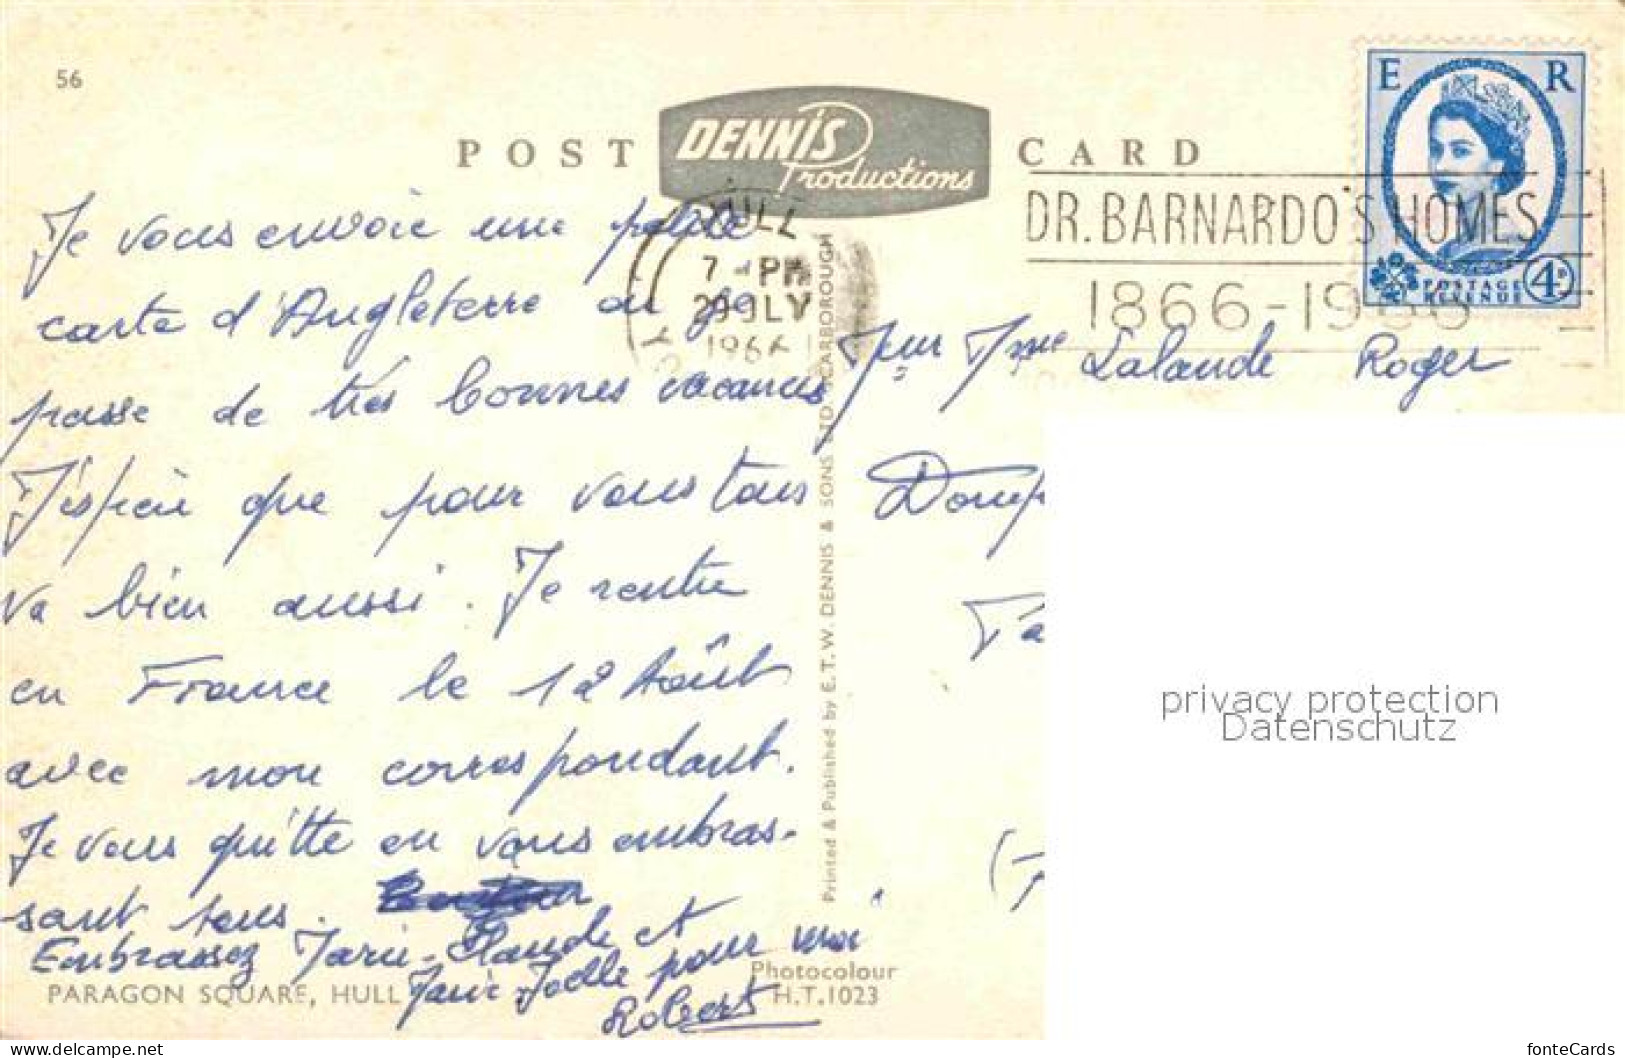 56
POST CARD
DENNIS
Productions
HULL
7 PM
29 JLY
1966
DR. BARNARDO'S HOMES
1866-1966
E R
POSTAGE
REVENUE
4D
Je vous envoie une petite
carte d'Angleterre où je
passe de très bonnes vacances
J'espère que pour vous tous
va bien aussi. Je rentre
en France le 12 Août
avec mon correspondant.
Je vous quitte en vous embras-
sant tous.
Embrassez Marie-Claude et
Marie-Joëlle pour moi
Robert
Meur Mme Lalande Roger
Printed & Published by E.T.W. DENNIS & SONS LTD. SCARBOROUGH
PARAGON SQUARE, HULL
Photocolour
H.T.1023
privacy protection
Datenschutz
https://www.delcampe.net
fonteCards